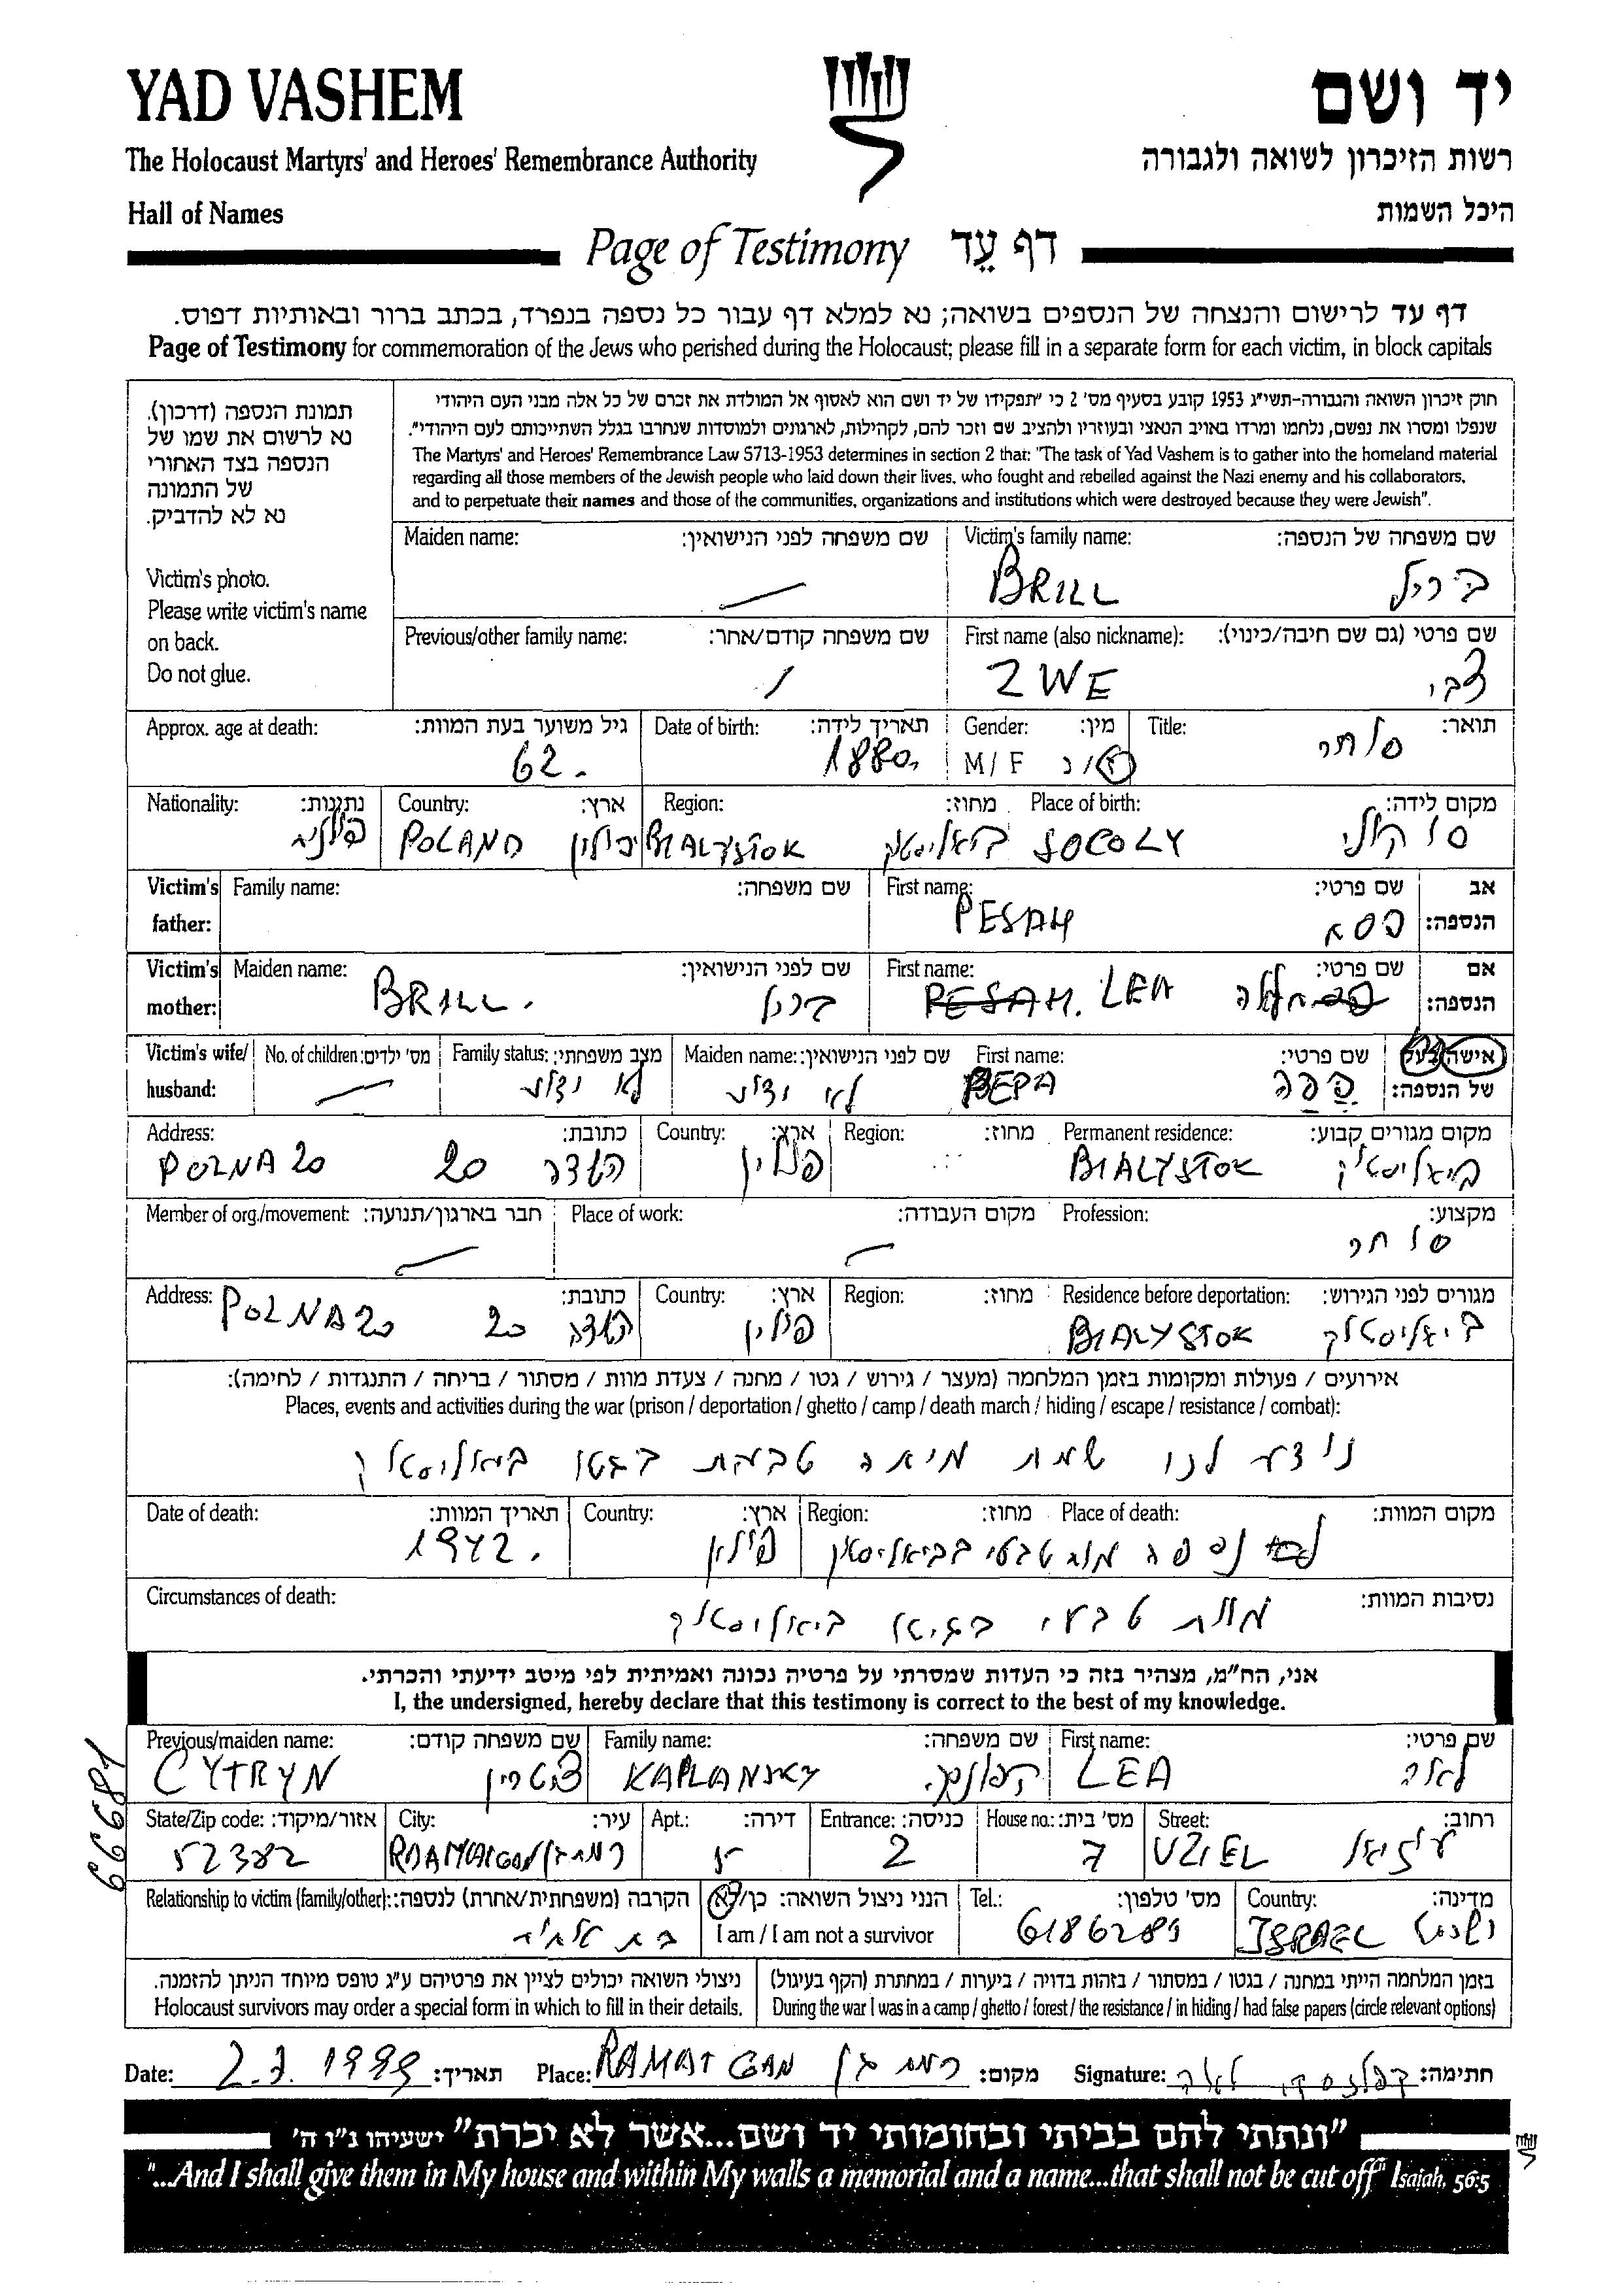 YAD VASHEM
יד ושם
The Holocaust Martyrs' and Heroes' Remembrance Authority
רשות הזיכרון לשואה ולגבורה
Hall of Names
היכל השמות
Page of Testimony דף עֵד
דף עד לרישום והנצחה של הנספים בשואה; נא למלא דף עבור כל נספה בנפרד, בכתב ברור ובאותיות דפוס.
Page of Testimony for commemoration of the Jews who perished during the Holocaust; please fill in a separate form for each victim, in block capitals
תמונת הנספה (דרכון).
נא לרשום את שמו של
הנספה בצד האחורי
של התמונה
נא לא להדביק.
Victim's photo.
Please write victim's name
on back.
Do not glue.
חוק זיכרון השואה והגבורה-תשי"ג 1953 קובע בסעיף מס' 2 כי "תפקידו של יד ושם הוא לאסוף אל המולדת את זכרם של כל אלה מבני העם היהודי
שנפלו ומסרו את נפשם, נלחמו ומרדו באויב הנאצי ובעוזריו ולהציב שם וזכר להם, לקהילות, לארגונים ולמוסדות שנחרבו בגלל השתייכותם לעם היהודי".
The Martyrs' and Heroes' Remembrance Law 5713-1953 determines in section 2 that: "The task of Yad Vashem is to gather into the homeland material
regarding all those members of the Jewish people who laid down their lives, who fought and rebelled against the Nazi enemy and his collaborators,
and to perpetuate their names and those of the communities, organizations and institutions which were destroyed because they were Jewish".
Maiden name: שם משפחה לפני הנישואין:
Victim's family name: שם משפחה של הנספה:
BRILL בריל
Previous/other family name: שם משפחה קודם/אחר:
First name (also nickname): שם פרטי (גם שם חיבה/כינוי):
ZWE צבי
Approx. age at death: גיל משוער בעת המוות:
62.
Date of birth: תאריך לידה:
1880.
Gender: מין:
M / F ז/נ
Title: תואר:
סוחר
Nationality: נתינות:
פולנית
Country: ארץ:
POLAND פולין
Region: מחוז:
BIALYSTOK ביאליסטוק
Place of birth: מקום לידה:
SOCOLY סוקולי
Victim's father: Family name: שם משפחה:
First name: שם פרטי: אב הנספה:
PESAH פסח
Victim's mother: Maiden name: שם לפני הנישואין:
BRILL. בריל
First name: שם פרטי: אם הנספה:
PESAH. LEA לאה
Victim's wife/ husband: No. of children: מס' ילדים:
Family status: מצב משפחתי:
לא ידוע
Maiden name: שם לפני הנישואין:
לא ידוע
First name: שם פרטי: אישה/בעל של הנספה:
BEPA
Address: כתובת:
POLNA 20 20
Country: ארץ:
פולין
Region: מחוז:
Permanent residence: מקום מגורים קבוע:
BIALYSTOK ביאליסטוק
Member of org./movement: חבר בארגון/תנועה:
Place of work: מקום העבודה:
Profession: מקצוע:
סוחר
Address: כתובת:
POLNA 20 20
Country: ארץ:
פולין
Region: מחוז:
Residence before deportation: מגורים לפני הגירוש:
BIALYSTOK ביאליסטוק
אירועים / פעולות ומקומות בזמן המלחמה (מעצר / גירוש / גטו / מחנה / צעדת מוות / מסתור / בריחה / התנגדות / לחימה):
Places, events and activities during the war (prison / deportation / ghetto / camp / death march / hiding / escape / resistance / combat):
נודע לנו שמת בגטו ביאליסטוק
Date of death: תאריך המוות:
1942.
Country: ארץ:
פולין
Region: מחוז:
Place of death: מקום המוות:
נספה מות טבעי בביאליסטוק
Circumstances of death: נסיבות המוות:
מות טבעי בגיטו ביאליסטוק
אני, הח"מ, מצהיר בזה כי העדות שמסרתי על פרטיה נכונה ואמיתית לפי מיטב ידיעתי והכרתי.
I, the undersigned, hereby declare that this testimony is correct to the best of my knowledge.
Previous/maiden name: שם משפחה קודם:
CYTRYN ציטרין
Family name: שם משפחה:
KAPLANSKY
First name: שם פרטי:
LEA לאה
State/Zip code: אזור/מיקוד:
52382
City: עיר:
רמת גן
Apt.: דירה:
Entrance: כניסה:
2
House no.: מס' בית:
7
Street: רחוב:
UZIEL עוזיאל
Relationship to victim (family/other): הקרבה (משפחתית/אחרת) לנספה:
I am / I am not a survivor הנני ניצול השואה: כן/לא
Tel.: מס' טלפון:
6186289
Country: מדינה:
ISRAEL ישראל
ניצולי השואה יכולים לציין את פרטיהם ע"ג טופס מיוחד הניתן להזמנה.
Holocaust survivors may order a special form in which to fill in their details.
בזמן המלחמה הייתי במחנה / בגטו / במסתור / בזהות בדויה / ביערות / במחתרת (הקף בעיגול)
During the war I was in a camp / ghetto / forest / the resistance / in hiding / had false papers (circle relevant options)
Date: 2.7.1999 תאריך: Place: RAMAT GAN רמת גן מקום: Signature: קפלנסקי לאה חתימה:
"ונתתי להם בביתי ובחומותי יד ושם...אשר לא יכרת" ישעיהו נ"ו ה'
"...And I shall give them in My house and within My walls a memorial and a name...that shall not be cut off" Isaiah, 56:5